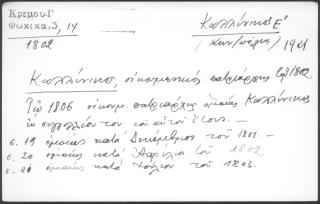 Κρεμου-Γ
Φωκικα, 3, 14
1802
Καλλίνικος Ε'
(Κων/πόλεως) 1921
Καλλίνικος, οικουμενικός πατριάρχης τω 1802
Τω 1806 οικουμ. πατριάρχης ομοίως Καλλίνικος
εκ συγγελίου του του αυτού έτους.-
σ. 19 ομοίως κατά Δεκέμβριον του 1801.-
σ. 20 ομοίως κατά Απρίλιο του 1802.
σ. 21 ομοίως κατά Ιούλιον του 1803.